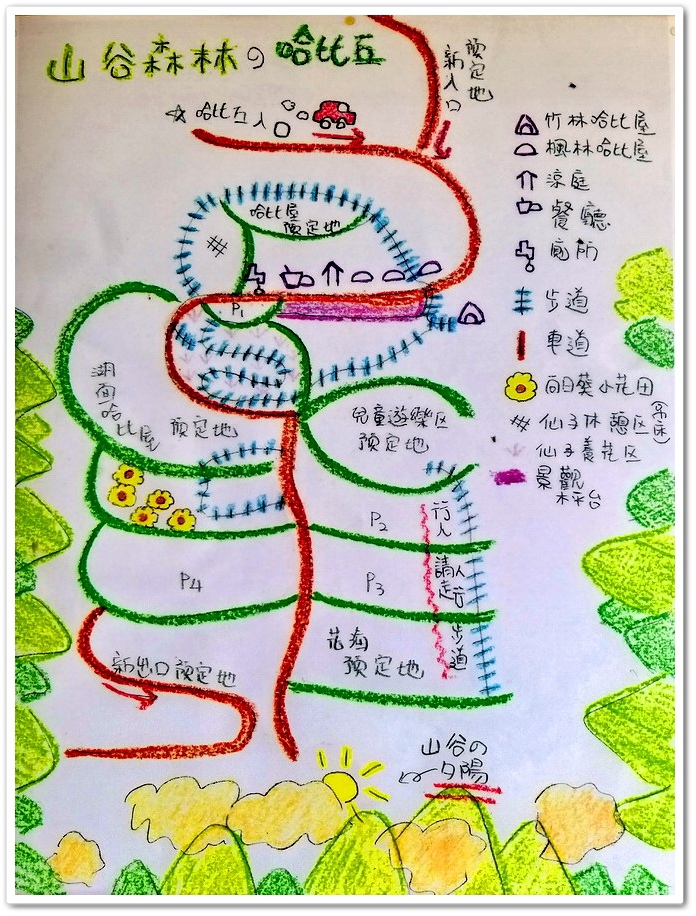 山谷森林の哈比丘
預定地
新入口
☆哈比丘入口
哈比屋
預定地
#
P1
湖面哈比屋
預定地
兒童遊樂区
預定地
P2
P3
P4
行人請走
步道
花海
預定地
新出口預定地
山谷の
夕陽
竹林哈比屋
楓林哈比屋
涼庭
餐廳
廁所
步道
車道
向日葵小花田
仙子休憩区
仙子養花区
景觀
平台